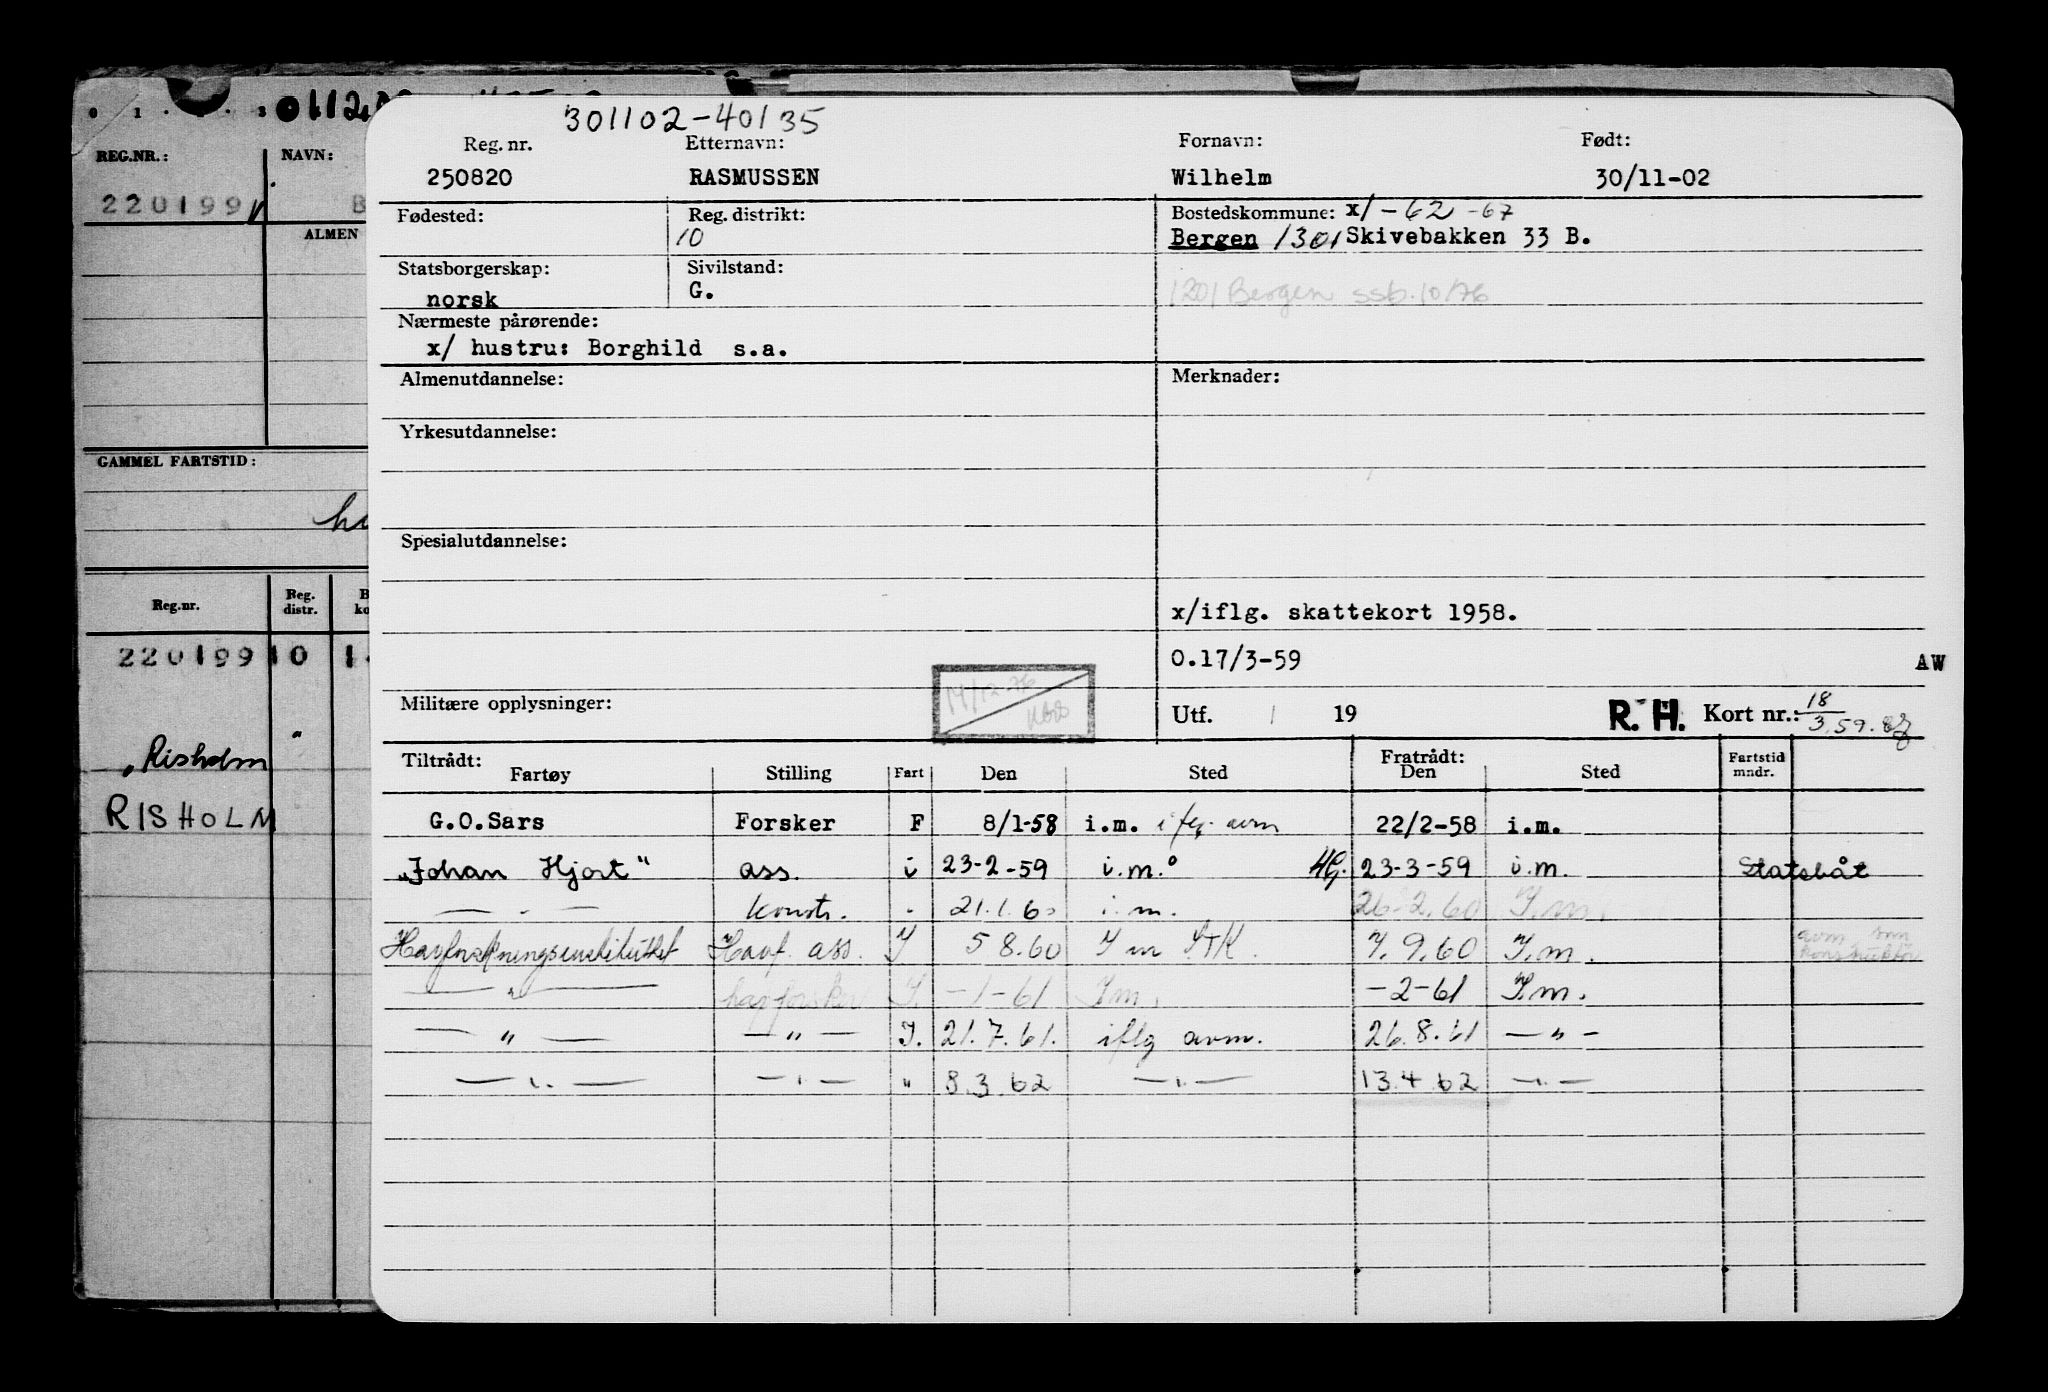 301102-40135
Reg. nr. Etternavn: Fornavn: Født:
250820 RASMUSSEN Wilhelm 30/11-02
Fødested: Reg. distrikt: Bostedskommune: x/ -62 -67
10 Bergen 1301 Skivebakken 33 B.
Statsborgerskap: Sivilstand:
norsk G. 1201 Bergen ssb. 10/76
Nærmeste pårørende:
x/ hustru: Borghild s.a.
Almenutdannelse: Merknader:
Yrkesutdannelse:
Spesialutdannelse:
x/iflg. skattekort 1958.
O.17/3-59 AW
Militære opplysninger: 14/12-76
Utf. 19 R. H. Kort nr.: 18/3.59.
Tiltrådt: Fratrådt: Fartstid
Fartøy Stilling Fart Den Sted Den Sted mndr.
G.O.Sars Forsker F 8/1-58 i.m. iflg. avm 22/2-58 i.m.
"Johan Hjort" ass. i 23-2-59 i.m. 23-3-59 i.m. Statsbåt
— " — konstr. " 21.1.60 i.m. 26-2.60 I.m.
Havforskningsinstituttet Havf. ass. I 5 8.60 I m 7.9.60 I.m. avm som konstruktør
— " — havforsker I. -1-61 I m. -2-61 I.m.
— " — — " — I. 21.7.61. iflg avm. 26.8.61 — " —
— " — — " — " 8.3.62 — " — 13.4.62 — " —
REG.NR.: NAVN:
220199
ALMEN
GAMMEL FARTSTID:
Reg.nr. Reg. distr.
220199 10
"Risholm "
RISHOLM